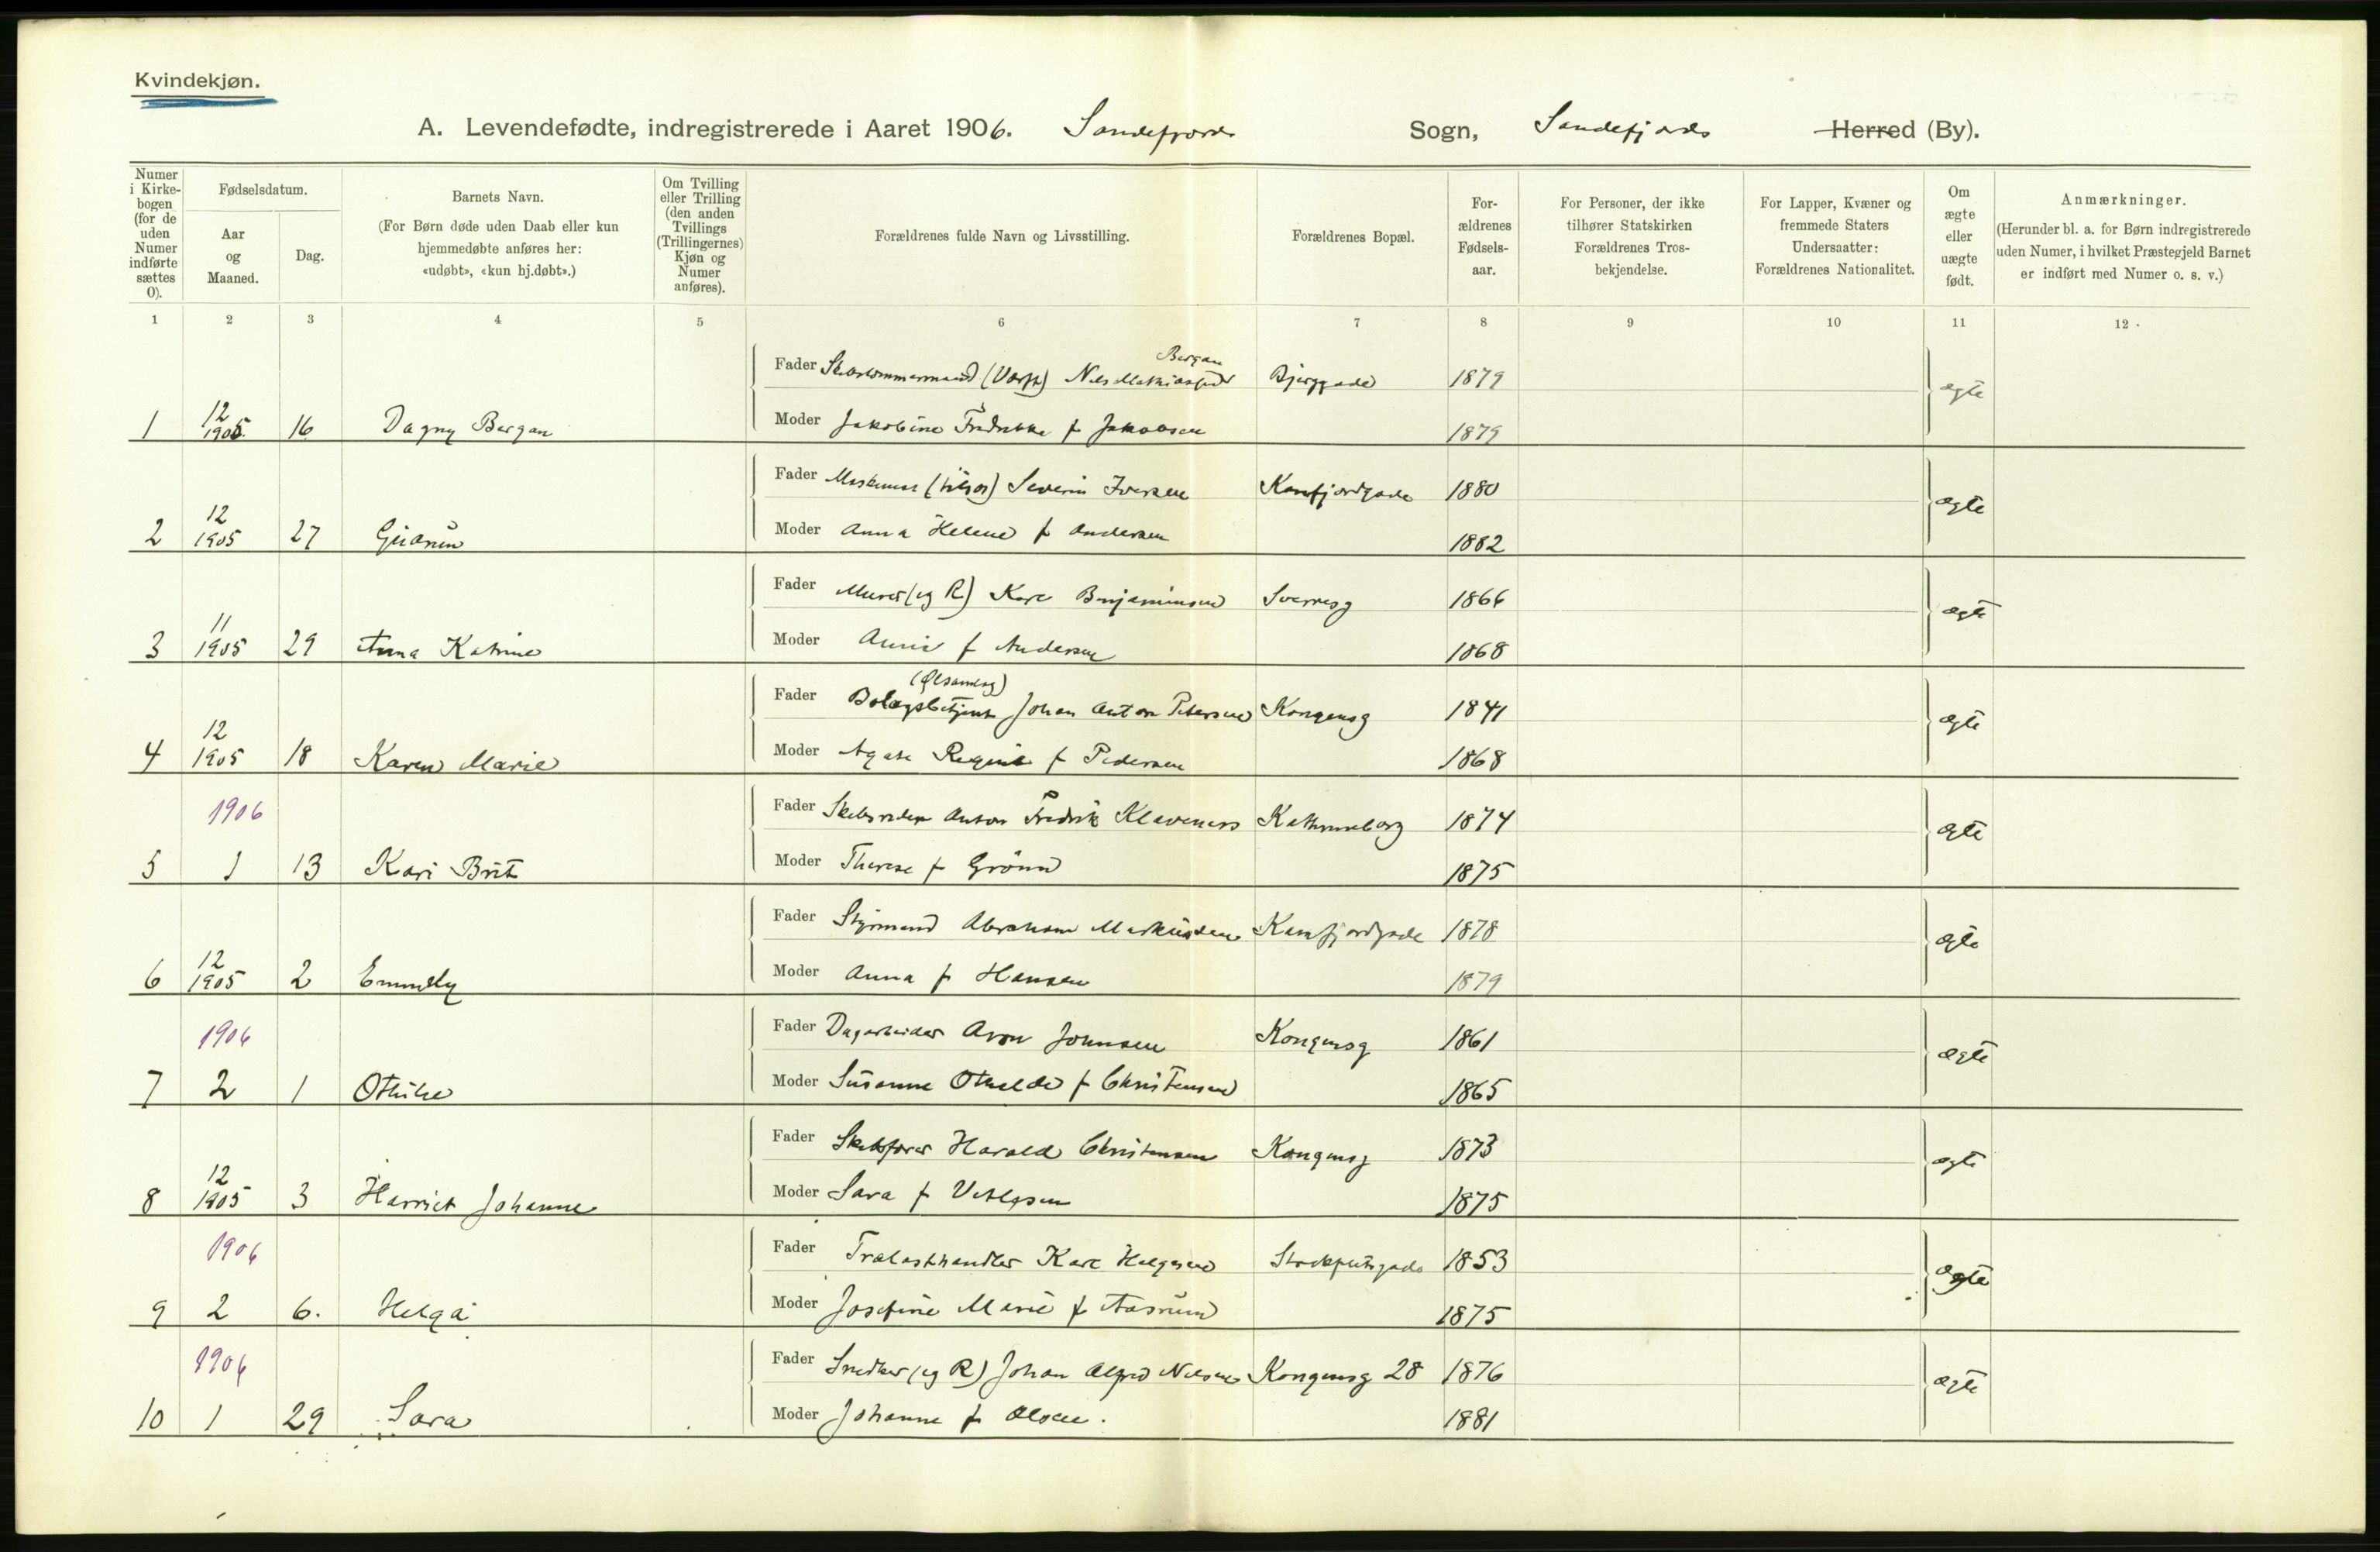 Kvindekjøn.
A. Levendefødte, indregistrerede i Aaret 1906. Sandefjords Sogn, Sandefjords Herred (By).
Numer i Kirke-bogen (for de uden Numer indførte sættes 0).
Fødselsdatum.
Aar og Maaned.
Dag.
Barnets Navn.
(For Børn døde uden Daab eller kun hjemmedøbte anføres her: «udøbt», «kun hj.døbt».)
Om Tvilling eller Trilling (den anden Tvillings (Trillingernes) Kjøn og Numer anføres).
Forældrenes fulde Navn og Livsstilling.
Forældrenes Bopæl.
For-ældrenes Fødsels-aar.
For Personer, der ikke tilhører Statskirken Forældrenes Tros-bekjendelse.
For Lapper, Kvæner og fremmede Staters Undersaatter: Forældrenes Nationalitet.
Om ægte eller uægte født.
Anmærkninger.
(Herunder bl. a. for Børn indregistrerede uden Numer, i hvilket Præstegjeld Barnet er indført med Numer o. s. v.)
1 2 3 4 5 6 7 8 9 10 11 12
Bergan
Fader Skibstømmermand (Værft) Nils Mathiassen Bjerggade 1879 ægte
1 12 1905. 16 Dagny Bergan Moder Jakobine Fredrikke f Jakobsen 1879
Fader (tilsøs) Severin Iversen Kamfjordgade 1880 ægte
2 12 1905 27 Gudrun Moder Anna Helene f Andersen 1882
Fader Murer (eg R) Karl Benjaminsen Sverresg 1866 ægte
3 11 1905 29 Anna Katrine Moder f Andersen 1868
(Ølsamlag)
Fader Bolagsbetjent Johan Anton Petersen Kongensg 1841 ægte
4 12 1905 18 Karen Marie Moder Agate Regine f Pedersen 1868
1906 Fader Skibsreder Anton Fredrik Klaveness Kathrineborg 1874 ægte
5 1 13 Kari Brit Moder Therese f Grönn 1875
Fader Styrmand Abraham Markussen Kamfjordgade 1878 ægte
6 12 1905 2 Emmely Moder Anna f Hansen 1879
1906 Fader Dagarbeider Aron Johnsen Kongensg 1861 ægte
7 2 1 Othilie Moder Susanne Othilde f Christensen 1865
Fader Skibsfører Harald Christensen Kongensg 1873 ægte
8 12 1905 3 Harriet Johanne Moder Sara f 1875
1906 Fader Trælasthandler Karl Helgesen 1853 ægte
9 2 6. Helga Moder Josefine Marie f Aasrum 1875
1906 Fader Snedker (eg R) Johan Alfred Nilsen Kongensg 28 1876 ægte
10 1 29 Sara Moder Johanne f Olsen. 1881